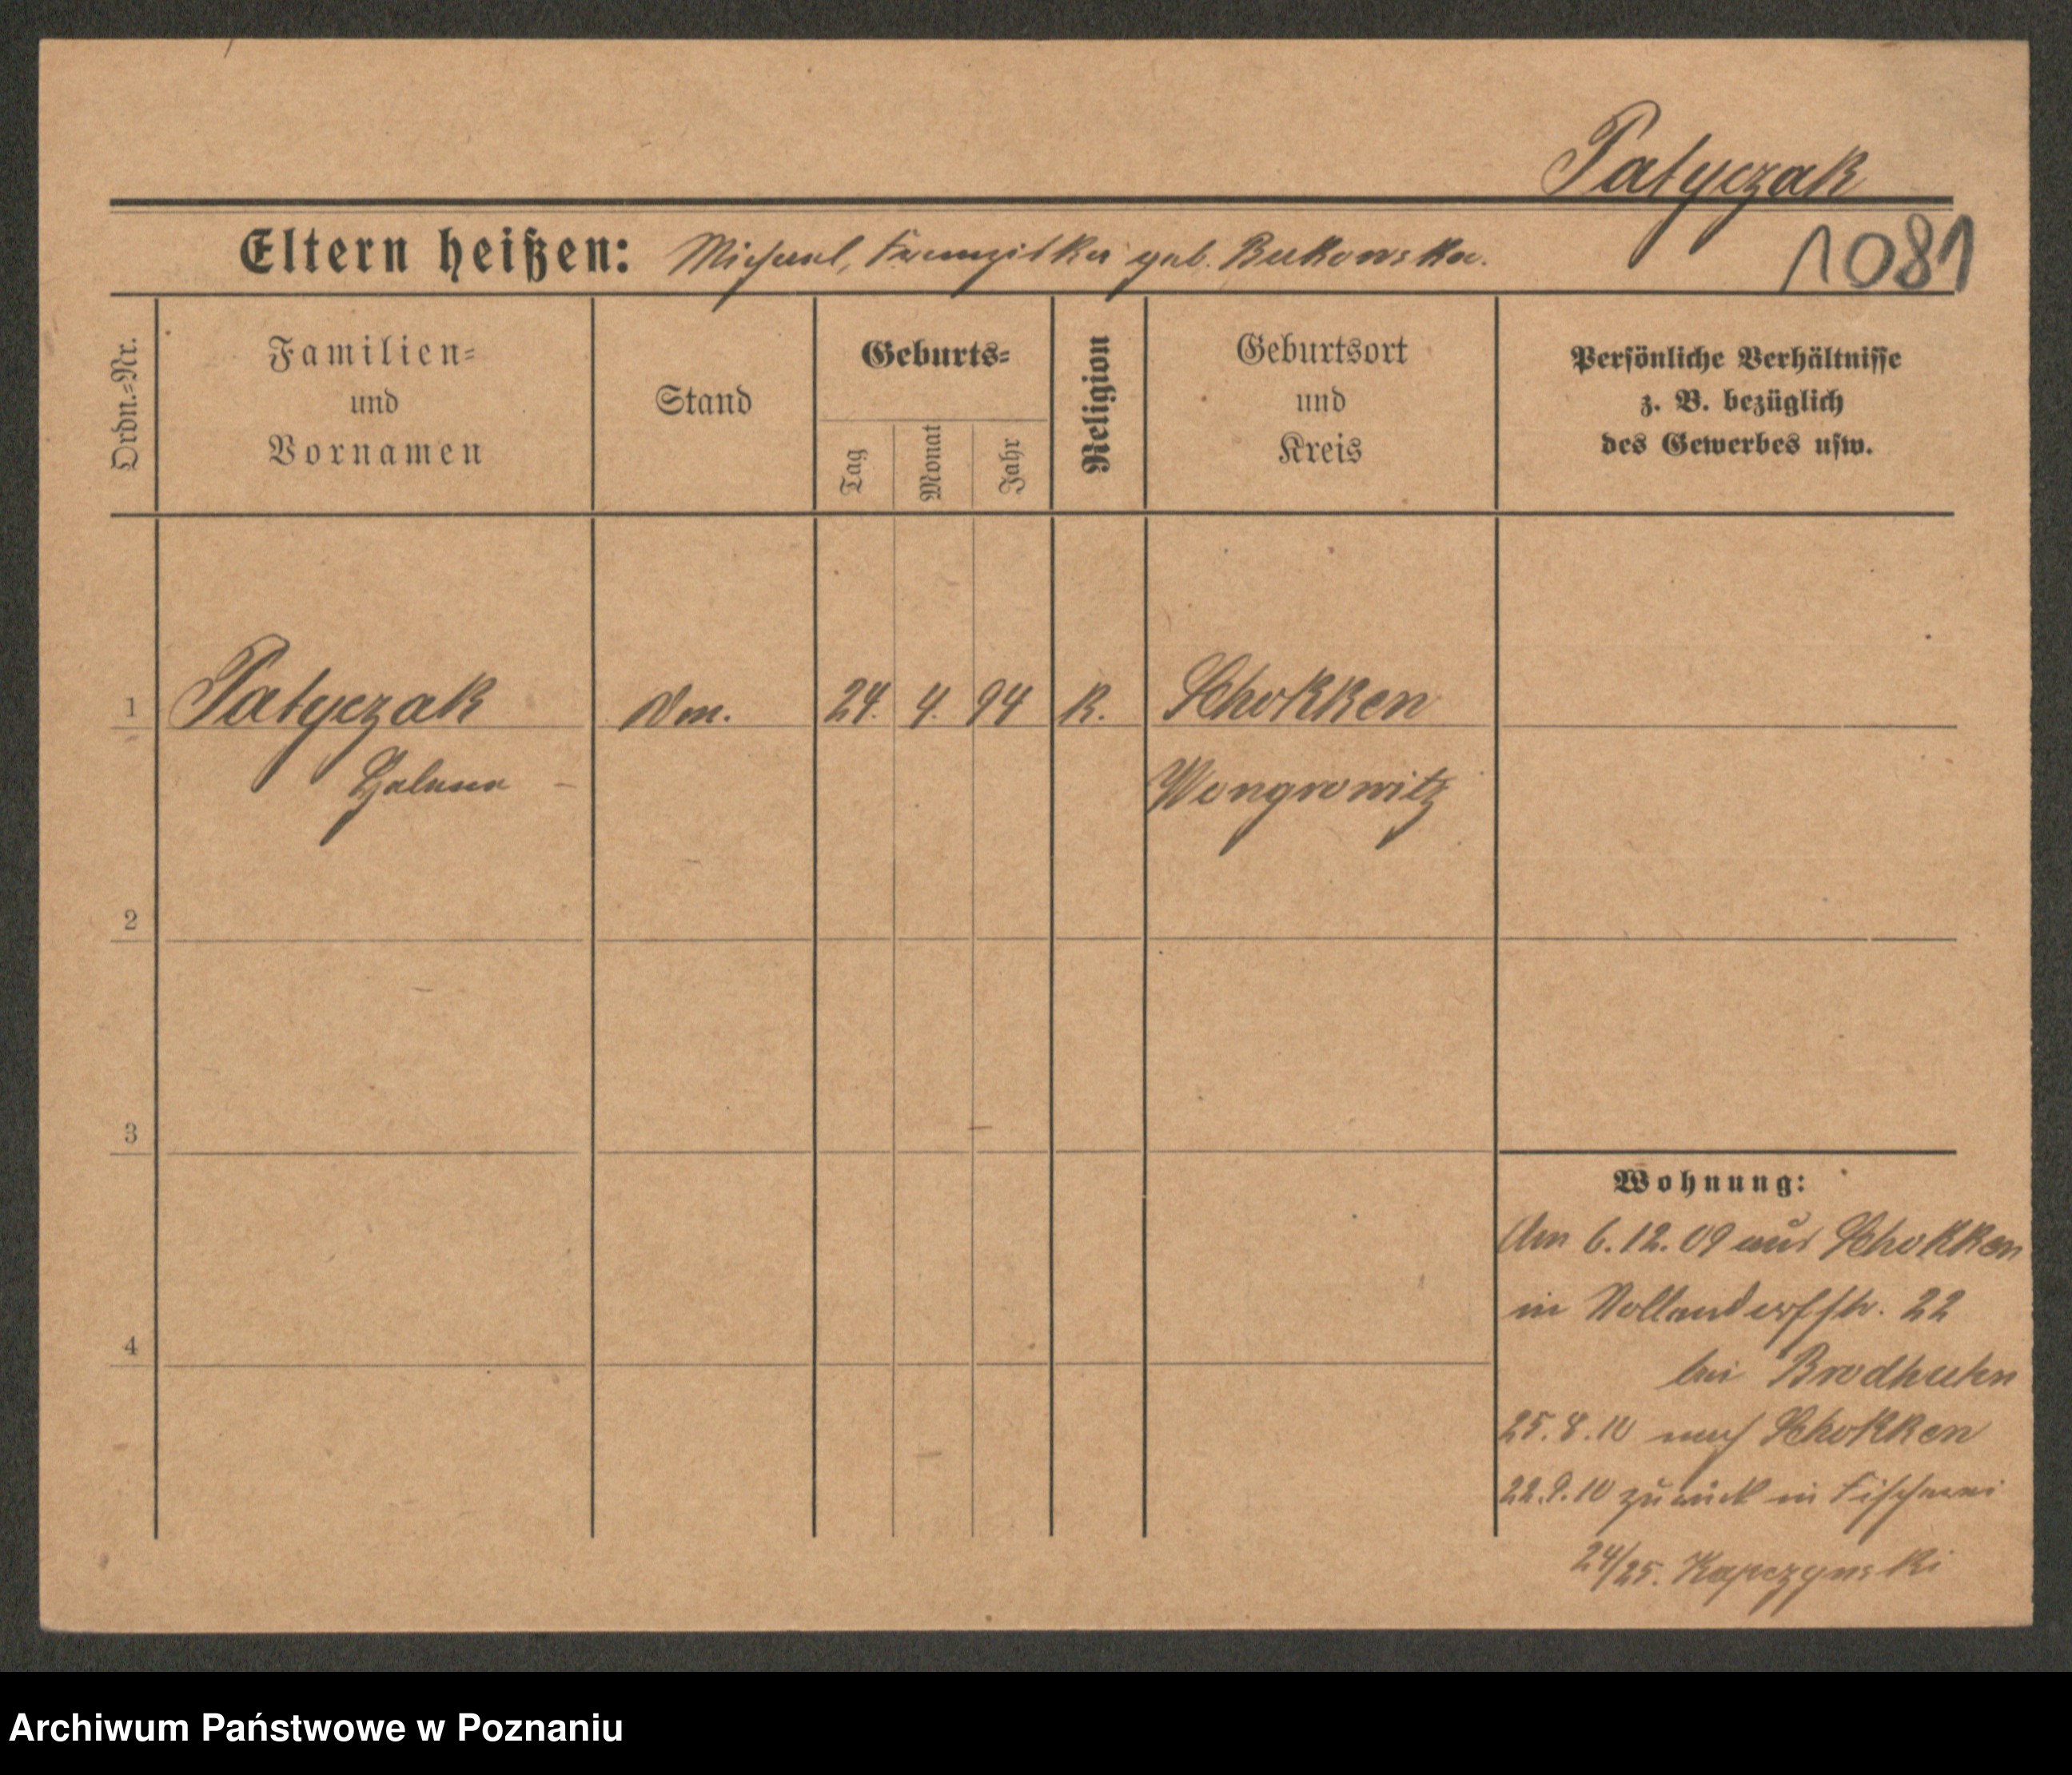 Patyczak
Eltern heißen: Michael, Franziska geb. Bukowska.
1081
Ordn.=Nr.
Familien=
und
Vornamen
Stand
Geburts=
Tag
Monat
Jahr
Religion
Geburtsort
und
Kreis
Persönliche Verhältnisse
z. B. bezüglich
des Gewerbes usw.
1 Patyczak 24. 4. 94 K. Schokken
Helena Wongrowitz
2
3
4
Wohnung:
Am 6.12.09 aus Schokken
in Nollendorfstr. 22
bei Brodhuhn
25.8.10 nach Schokken
22.9.10 zurück in Fischerei
24/25. Kapczynski
Archiwum Państwowe w Poznaniu